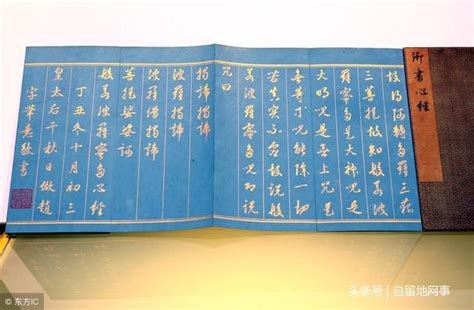 御書心經
故得阿耨多羅三藐
三菩提故知般若波
羅蜜多是大神咒是
大明咒是無上咒是
無等等咒能除一切
苦真實不虛故說般
若波羅蜜多咒即說
咒曰
揭諦揭諦
波羅揭諦
波羅僧揭諦
菩提娑婆訶
般若波羅蜜多心經
丁丑冬十月初三
皇太后千秋日倣趙
字筆意敬書
头条号 / 自留地网事
© 东方IC